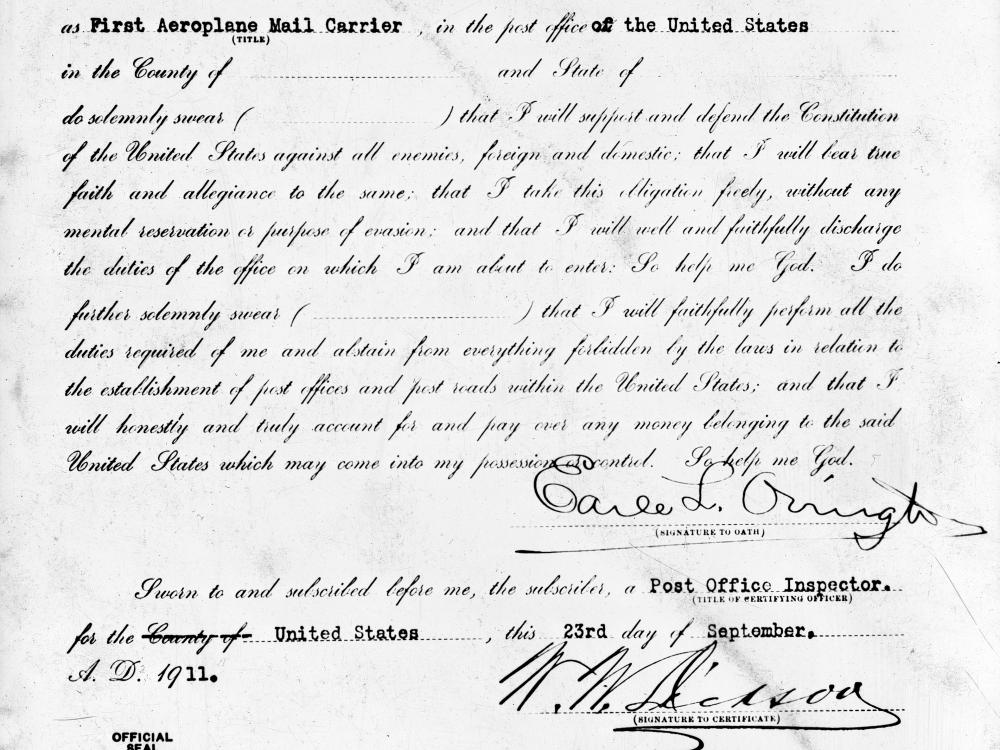 as First Aeroplane Mail Carrier, in the post office of the United States
(TITLE)
in the County of and State of
do solemnly swear ( ) that I will support and defend the Constitution
of the United States against all enemies, foreign and domestic; that I will bear true
faith and allegiance to the same; that I take this obligation freely, without any
mental reservation or purpose of evasion; and that I will well and faithfully discharge
the duties of the office on which I am about to enter: So help me God. I do
further solemnly swear ( ) that I will faithfully perform all the
duties required of me and abstain from everything forbidden by the laws in relation to
the establishment of post offices and post roads within the United States; and that I
will honestly and truly account for and pay over any money belonging to the said
United States which may come into my possession or control. So help me God.
Earle L. Ovington
(SIGNATURE TO OATH)
Sworn to and subscribed before me, the subscriber, a Post Office Inspector.
(TITLE OF CERTIFYING OFFICER)
for the County of United States, this 23rd day of September.
A. D. 1911.
W. W. Dickson
(SIGNATURE TO CERTIFICATE)
OFFICIAL
SEAL